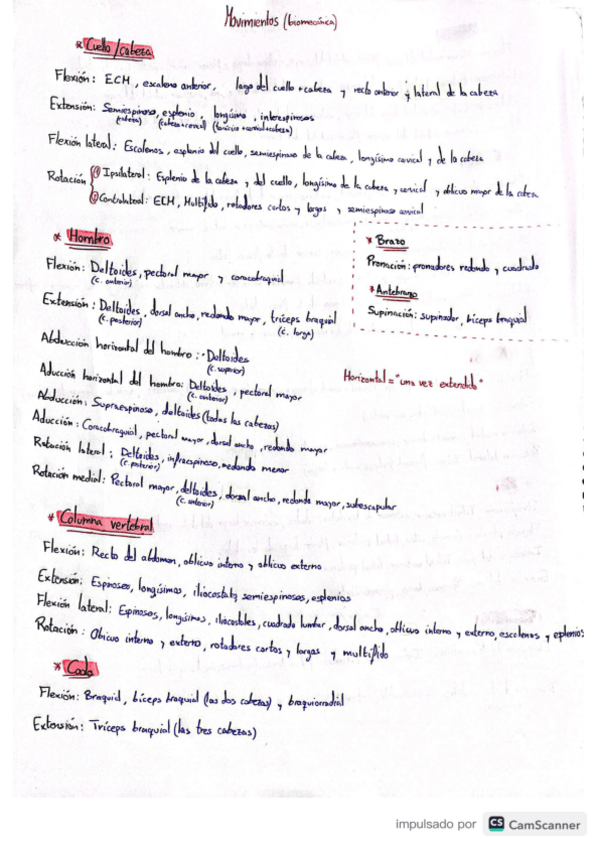 Movimientos (biomecánica)
* Cuello/cabeza
Flexión: ECM, escaleno anterior, largo del cuello + cabeza y recto anterior y lateral de la cabeza
Extensión: Semiespinoso, esplenio, longísimo, interespinosos
(cabeza + cervical) (torácico + cervical + cabeza)
Flexión lateral: Escalenos, esplenio del cuello, semiespinoso de la cabeza, longísimo cervical y de la cabeza
Rotación
① Ipsilateral: Esplenio de la cabeza y del cuello, longísimo de la cabeza y cervical y oblicuo mayor de la cabeza
② Contralateral: ECM, Multífido, rotadores cortos y largos y semiespinoso cervical
* Hombro
Flexión: Deltoides, pectoral mayor y coracobraquial
(c. anterior)
Extensión: Deltoides, dorsal ancho, redondo mayor, tríceps braquial
(c. posterior) (c. larga)
Abducción horizontal del hombro: Deltoides
(c. superior)
Aducción horizontal del hombro: Deltoides, pectoral mayor
(c. anterior)
Abducción: Supraespinoso, deltoides (todas las cabezas)
Aducción: Coracobraquial, pectoral mayor, dorsal ancho, redondo mayor
Rotación lateral: Deltoides, infraespinoso, redondo menor
(c. posterior)
Rotación medial: Pectoral mayor, deltoides, dorsal ancho, redondo mayor, subescapular
(c. anterior)
* Brazo
Pronación: pronadores redondo y cuadrado
* Antebrazo
Supinación: supinador, bíceps braquial
Horizontal = "una vez extendido"
* Columna vertebral
Flexión: Recto del abdomen, oblicuo interno y oblicuo externo
Extensión: Espinosos, longísimos, iliocostales, semiespinosos, esplenios
Flexión lateral: Espinosos, longísimos, iliocostales, cuadrado lumbar, dorsal ancho, oblicuo interno y externo, escalenos y esplenios
Rotación: Oblicuo interno y externo, rotadores cortos y largos y multífido
* Codo
Flexión: Braquial, bíceps braquial (las dos cabezas) y braquiorradial
Extensión: Tríceps braquial (las tres cabezas)
impulsado por CS CamScanner